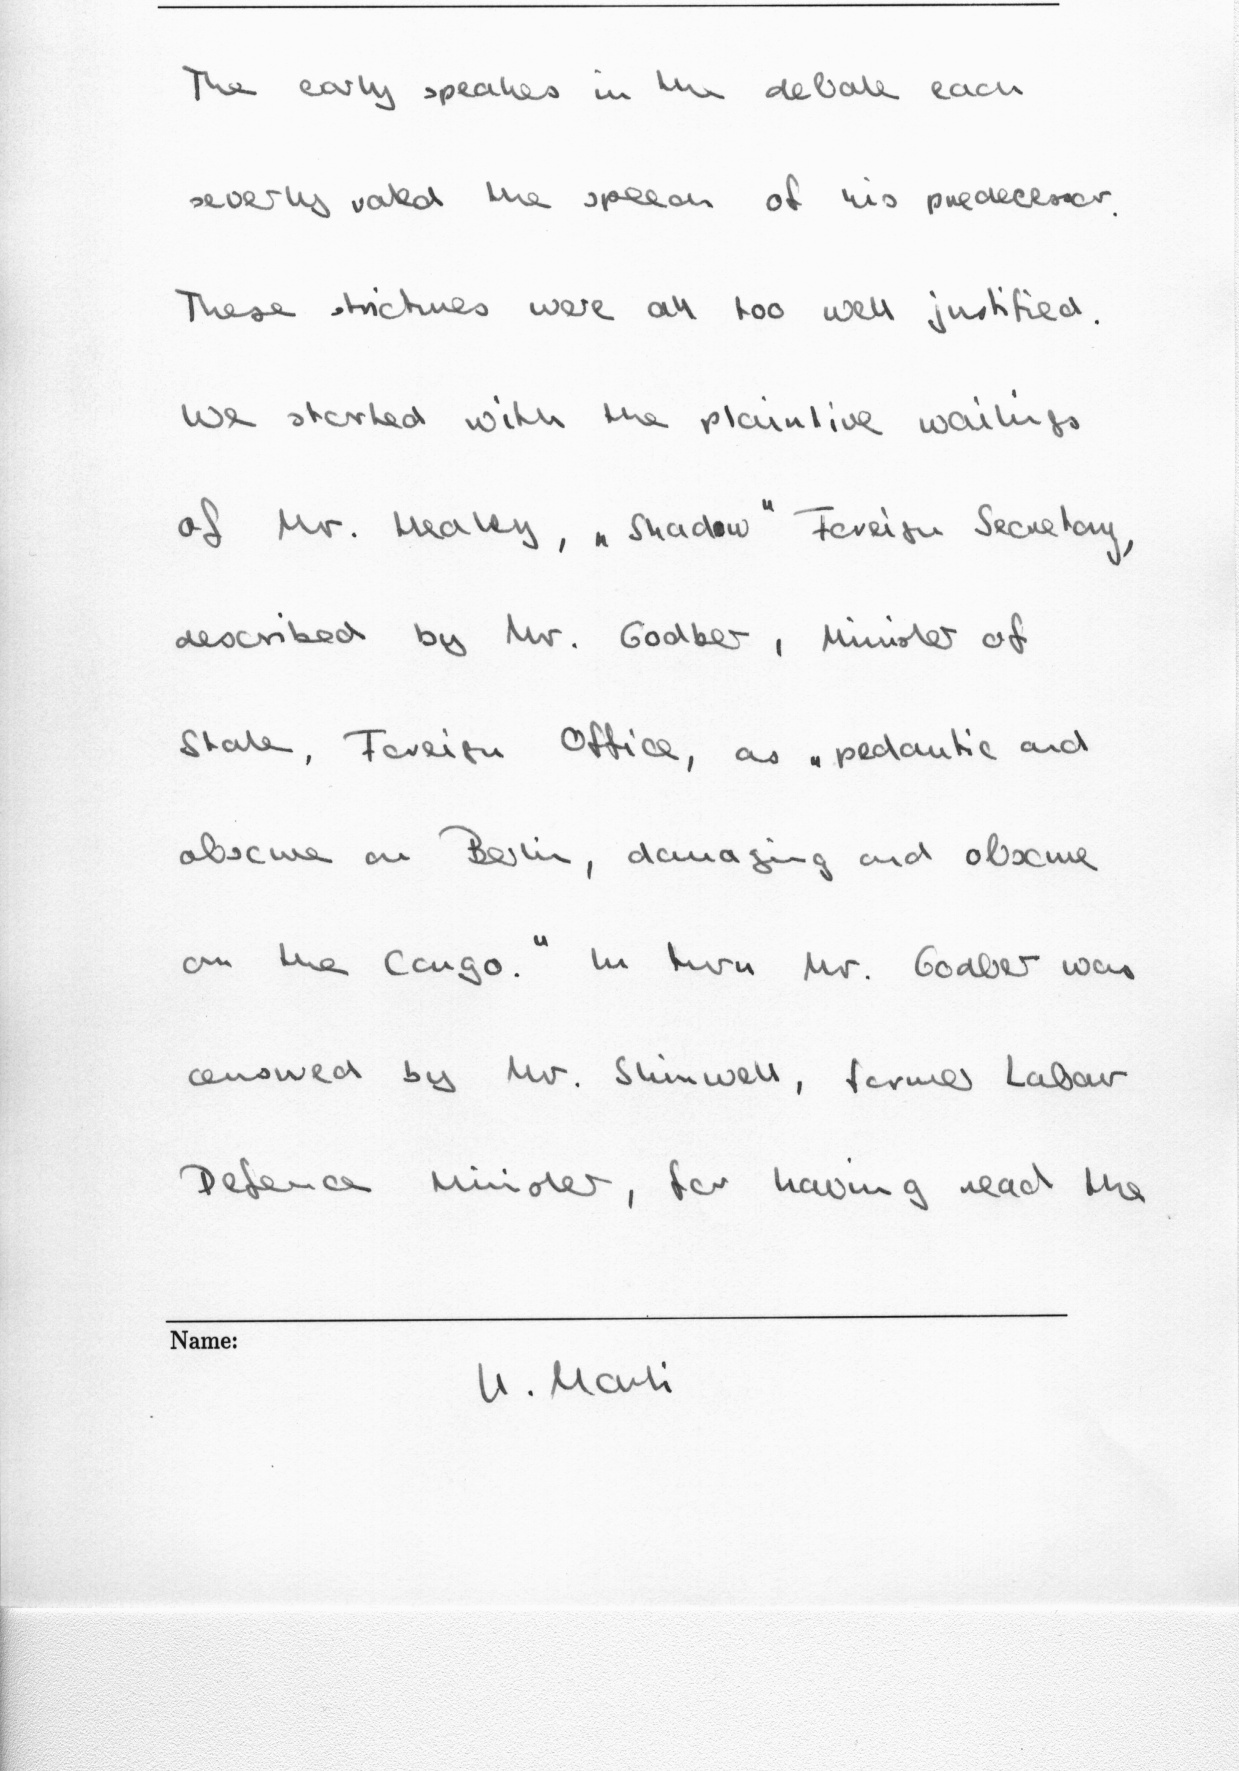 The early speakes in the debate each
severly rated the speech of his predecessor.
These strictures were all too well justified.
We started with the plaintive wailings
of Mr. Healey, „Shadow" Foreign Secretary,
described by Mr. Godber, Minister of
State, Foreign Office, as „pedantic and
obscure on Berlin, damaging and obscure
on the Congo." In turn Mr. Godber was
censured by Mr. Shinwell, former Labour
Defence Minister, for having read the
Name:
U. Marti